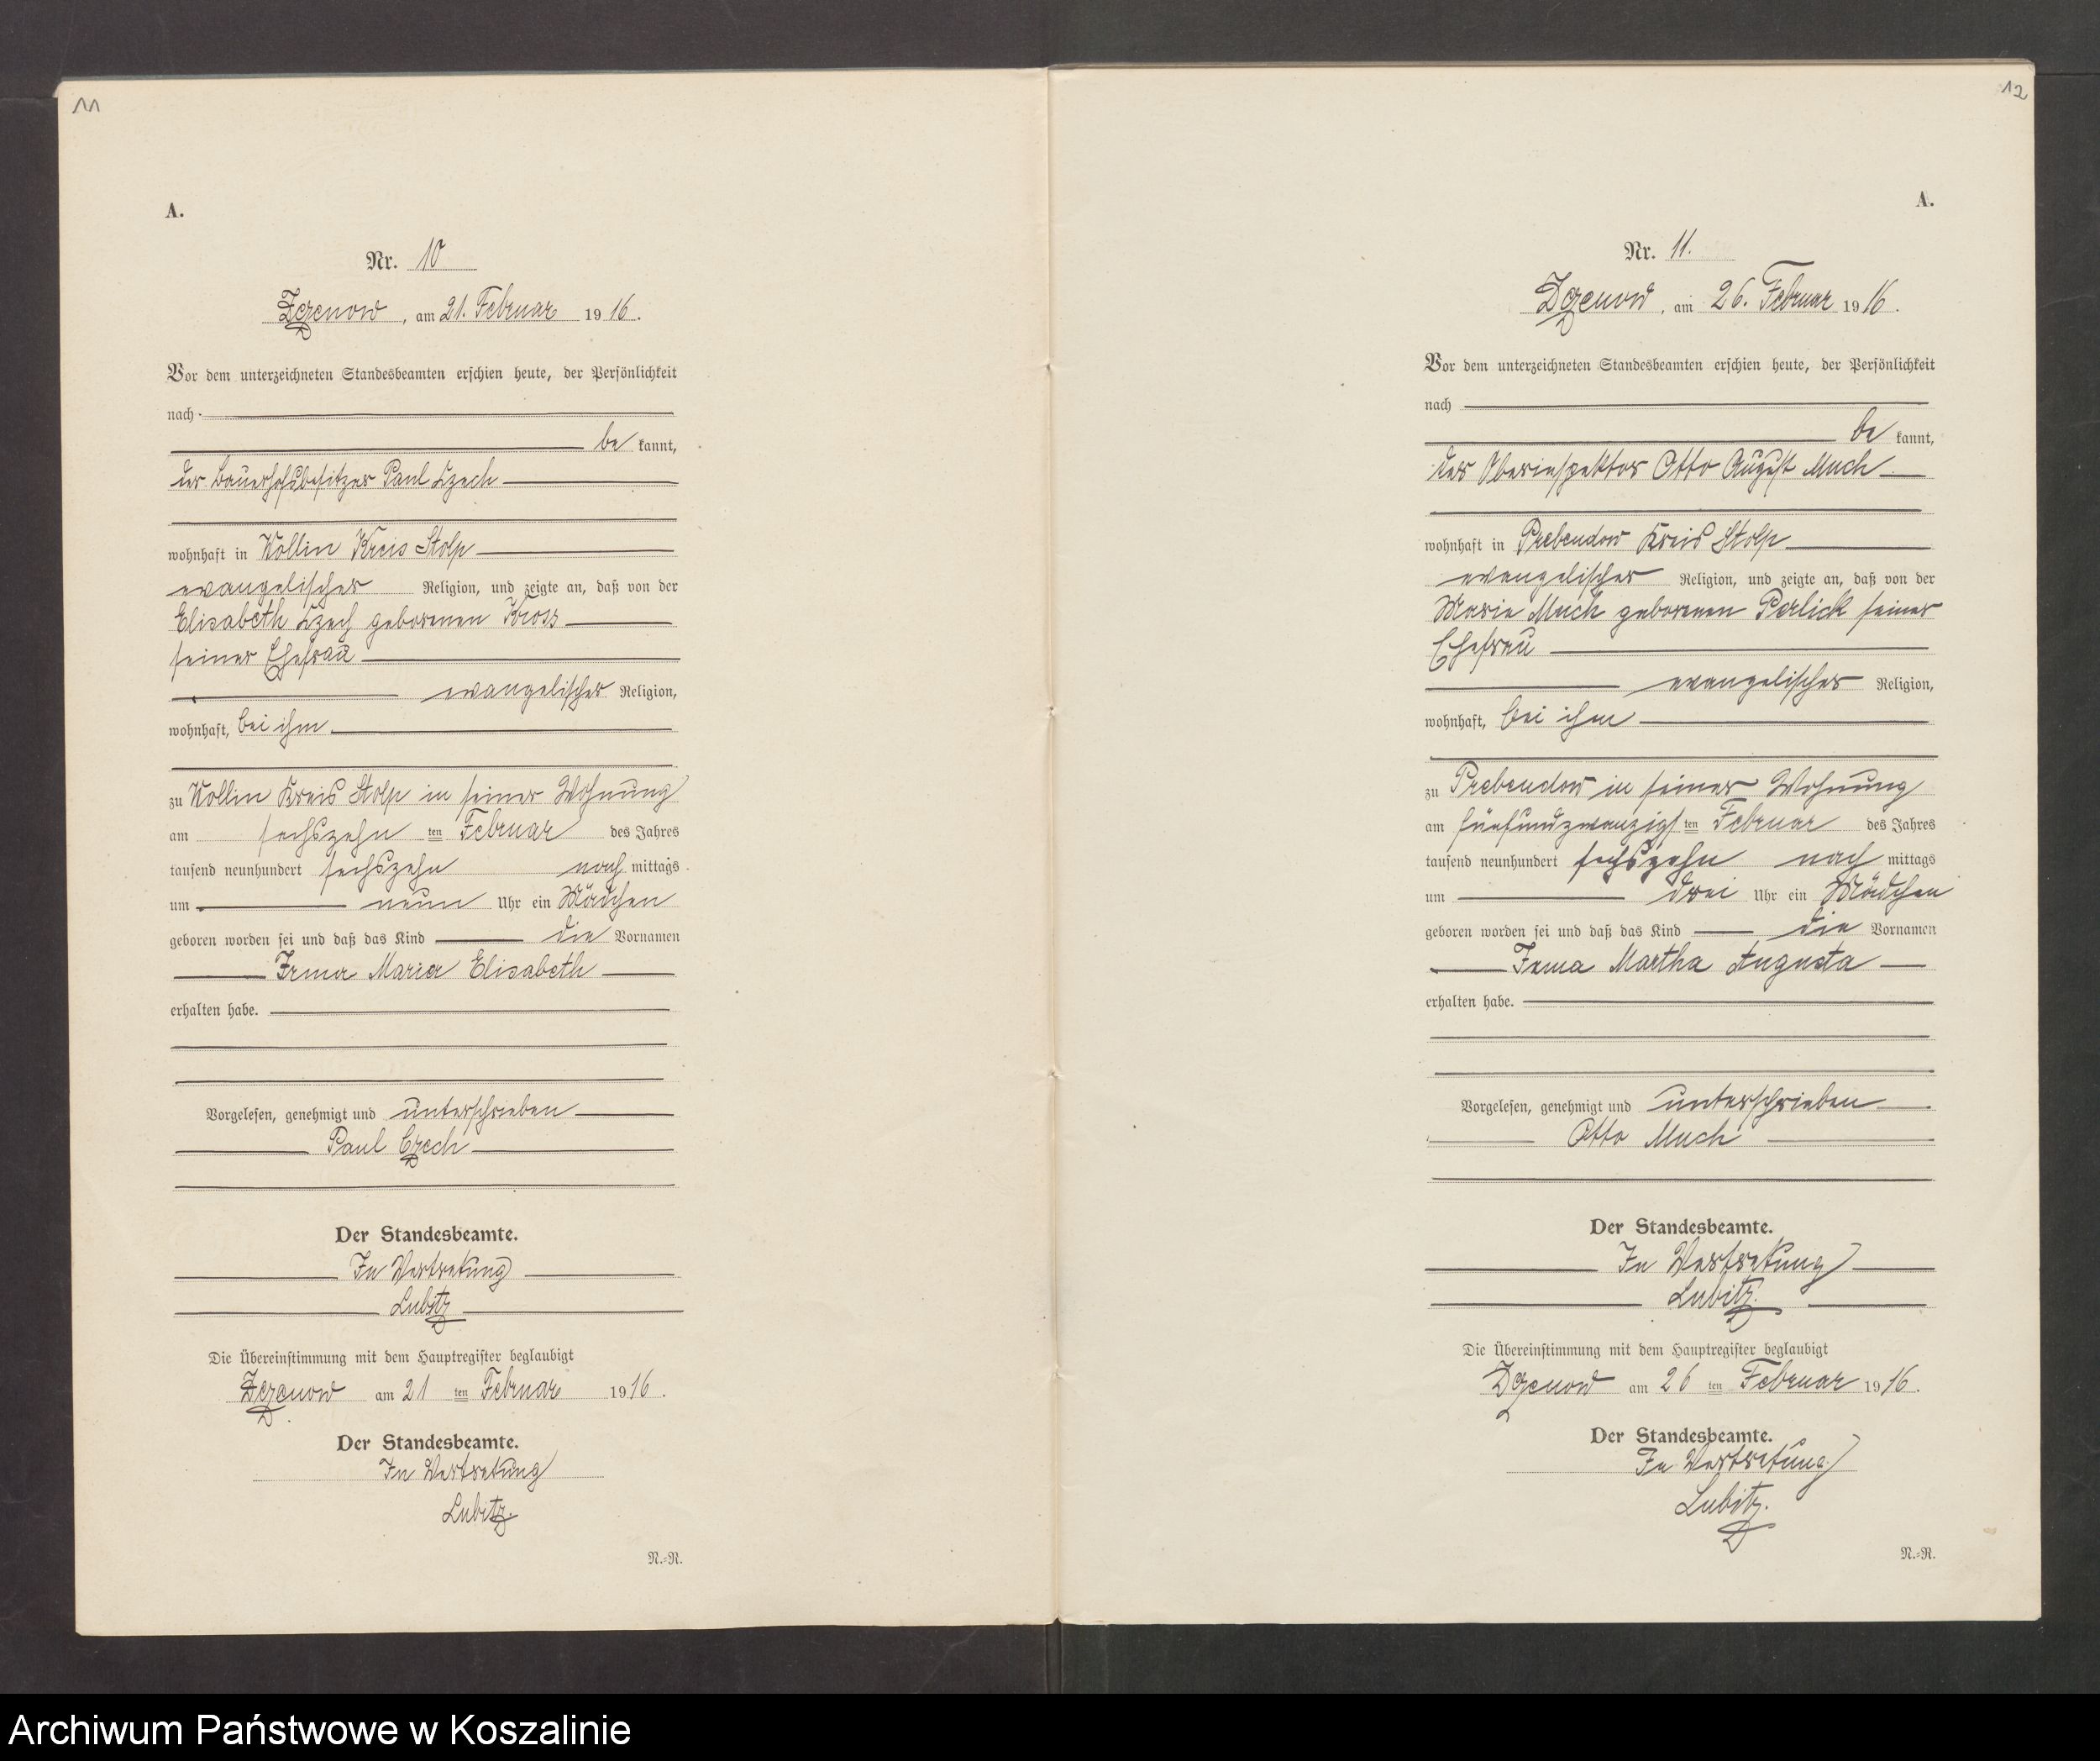 11
A.
Nr. 10
Zezenow, am 21. Februar 1916.
Vor dem unterzeichneten Standesbeamten erschien heute, der Persönlichkeit
nach
be kannt,
der Bauerhofsbesitzer Paul Czech
wohnhaft in Wollin Kreis Stolp
evangelischer Religion, und zeigte an, daß von der
Elisabeth Czech geborenen Kross
seiner Ehefrau
evangelischer Religion,
wohnhaft, bei ihm
zu Wollin Kreis Stolp in seiner Wohnung
am sechszehn ten Februar des Jahres
tausend neunhundert sechszehn nach mittags
um neun Uhr ein Mädchen
geboren worden sei und daß das Kind die Vornamen
Irma Maria Elisabeth
erhalten habe.
Vorgelesen, genehmigt und unterschrieben
Paul Czech
Der Standesbeamte.
In Vertretung
Lubitz
Die Übereinstimmung mit dem Hauptregister beglaubigt
Zezenow am 21 ten Februar 1916.
Der Standesbeamte.
In Vertretung
Lubitz.
N.=R.
12
A.
Nr. 11.
Zezenow, am 26. Februar 1916.
Vor dem unterzeichneten Standesbeamten erschien heute, der Persönlichkeit
nach
be kannt,
der Oberinspektor Otto August Much
wohnhaft in Prebendow Kreis Stolp
evangelischer Religion, und zeigte an, daß von der
Marie Much geborenen Perlick seiner
Ehefrau
evangelischer Religion,
wohnhaft, bei ihm
zu Prebendow in seiner Wohnung
am fünfundzwanzigs ten Februar des Jahres
tausend neunhundert sechszehn nach mittags
um drei Uhr ein Mädchen
geboren worden sei und daß das Kind die Vornamen
Martha Augusta
erhalten habe.
Vorgelesen, genehmigt und unterschrieben
Otto Much
Der Standesbeamte.
In Vertretung
Lubitz.
Die Übereinstimmung mit dem Hauptregister beglaubigt
Zezenow am 26 ten Februar 1916.
Der Standesbeamte.
In Vertretung
Lubitz.
N.=R.
Archiwum Państwowe w Koszalinie